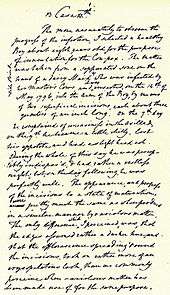 Case
The more accurately to observe the
progress of the infection, I selected a healthy
Boy about eight years old for the purpose
of inoculation for the Cow Pox. The matter
was taken from a suppurated sore on the
hand of a Dairy Maid who was infected by
her Masters Cows and inserted, on the 14th of
May 1796 into the arm of the Boy by means
of two superficial incisions, each about three
quarters of an inch long. On the 7th day
he complained of uneasiness in the axilla, &
on the 9th he became a little chilly, lost
his appetite, and had a slight head ach.
During the whole of this day he was percep-
tibly indispos'd, & had rather a restless
night; but on the day following he was
perfectly well. The appearance, and progress
of the incisions to a state of maturation
were pretty much the same as when produc'd
in a similar manner by variolous matter.
The only difference I perceived was that
the edges rather a darker hue, and
that the efflorescence spreading round
the incisions, took on rather more of an
erysipelatous look, than we commonly
perceive when variolous matter has
been made use of for the same purpose,